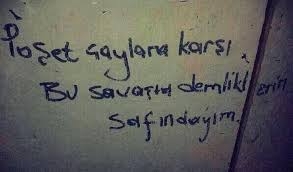 Poşet çaylara karşı
Bu savaşta demliklerin
Safındayım.